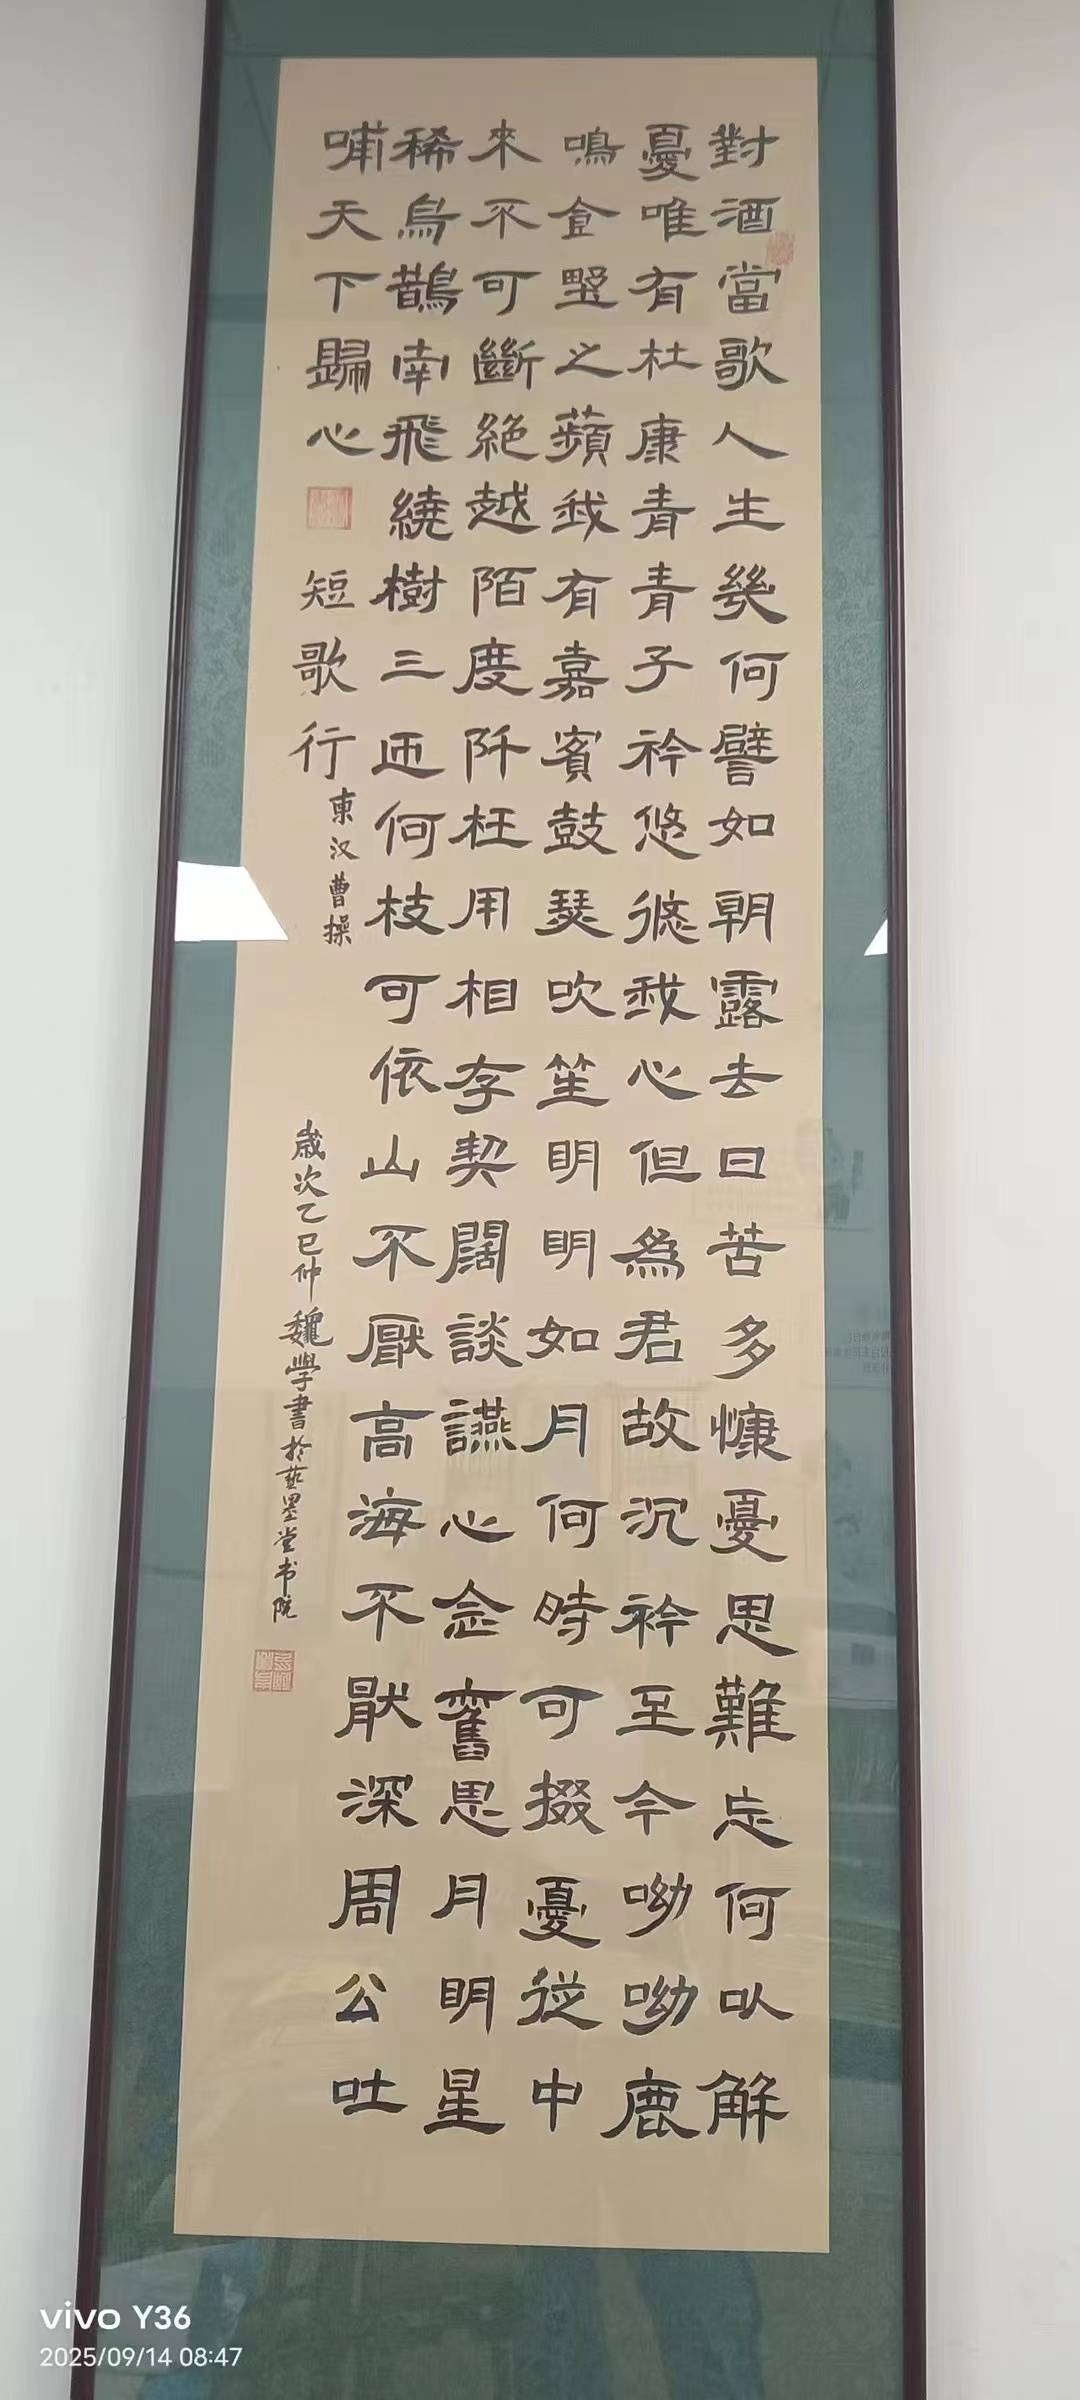 對酒當歌人生幾何譬如朝露去日苦多慷憂思難忘何以解
憂唯有杜康青青子衿悠悠我心但為君故沉衿至今呦呦鹿
鳴食野之蘋我有嘉賓鼓瑟吹笙明明如月何時可掇憂從中
來不可斷絕越陌度阡枉用相存契闊談讌心念舊思月明星
稀烏鵲南飛繞樹三匝何枝可依山不厭高海不厭深周公吐
哺天下歸心
短歌行
東汉曹操
歲次乙巳仲魏學書於藝墨堂书院
vivo Y36
2025/09/14 08:47